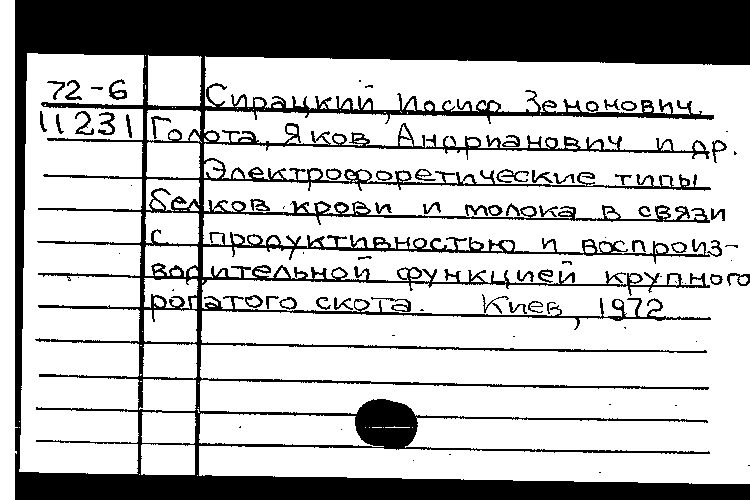 72-6 Сирацкий, Иосиф Зенонович.
11231 Голота, Яков Андрианович и др.
Электрофоретические типы
белков крови и молока в связи
с продуктивностью и воспроиз-
водительной функцией крупного
рогатого скота. Киев, 1972